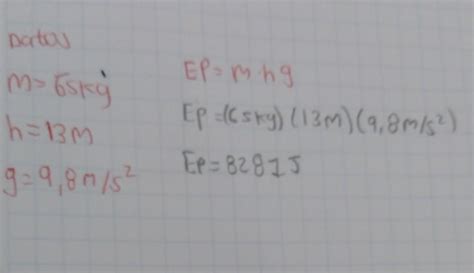 Datos
m=65kg
h=13m
g=9,8m/s²
EP=m.hg
Ep=(65kg)(13m)(9,8m/s²)
Ep=8281J